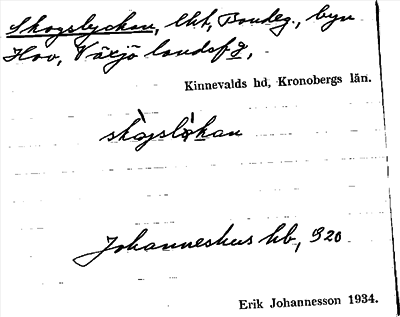 Skogslyckan, lht, Bondeg., byn
Hov, Växjö landsf g,
Kinnevalds hd, Kronobergs län.
skògslỳkan
Johanneshus hb, 920
Erik Johannesson 1934.